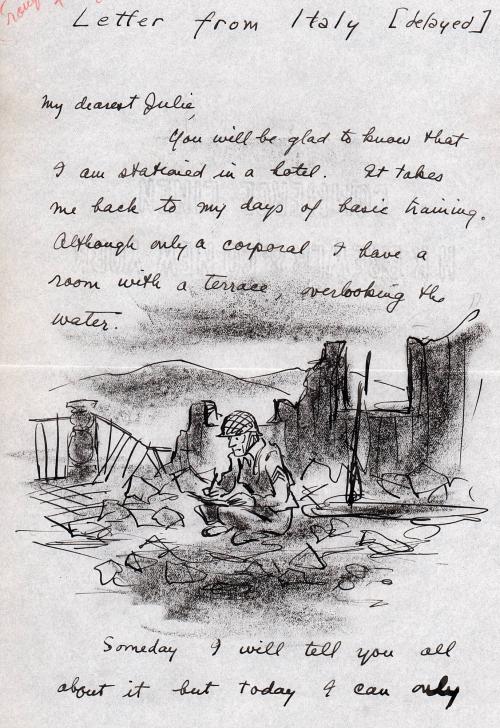 Letter from Italy [delayed]
My dearest Julie,
You will be glad to know that
I am stationed in a hotel. It takes
me back to my days of basic training.
Although only a corporal I have a
room with a terrace, overlooking the
water.
Someday I will tell you all
about it but today I can only